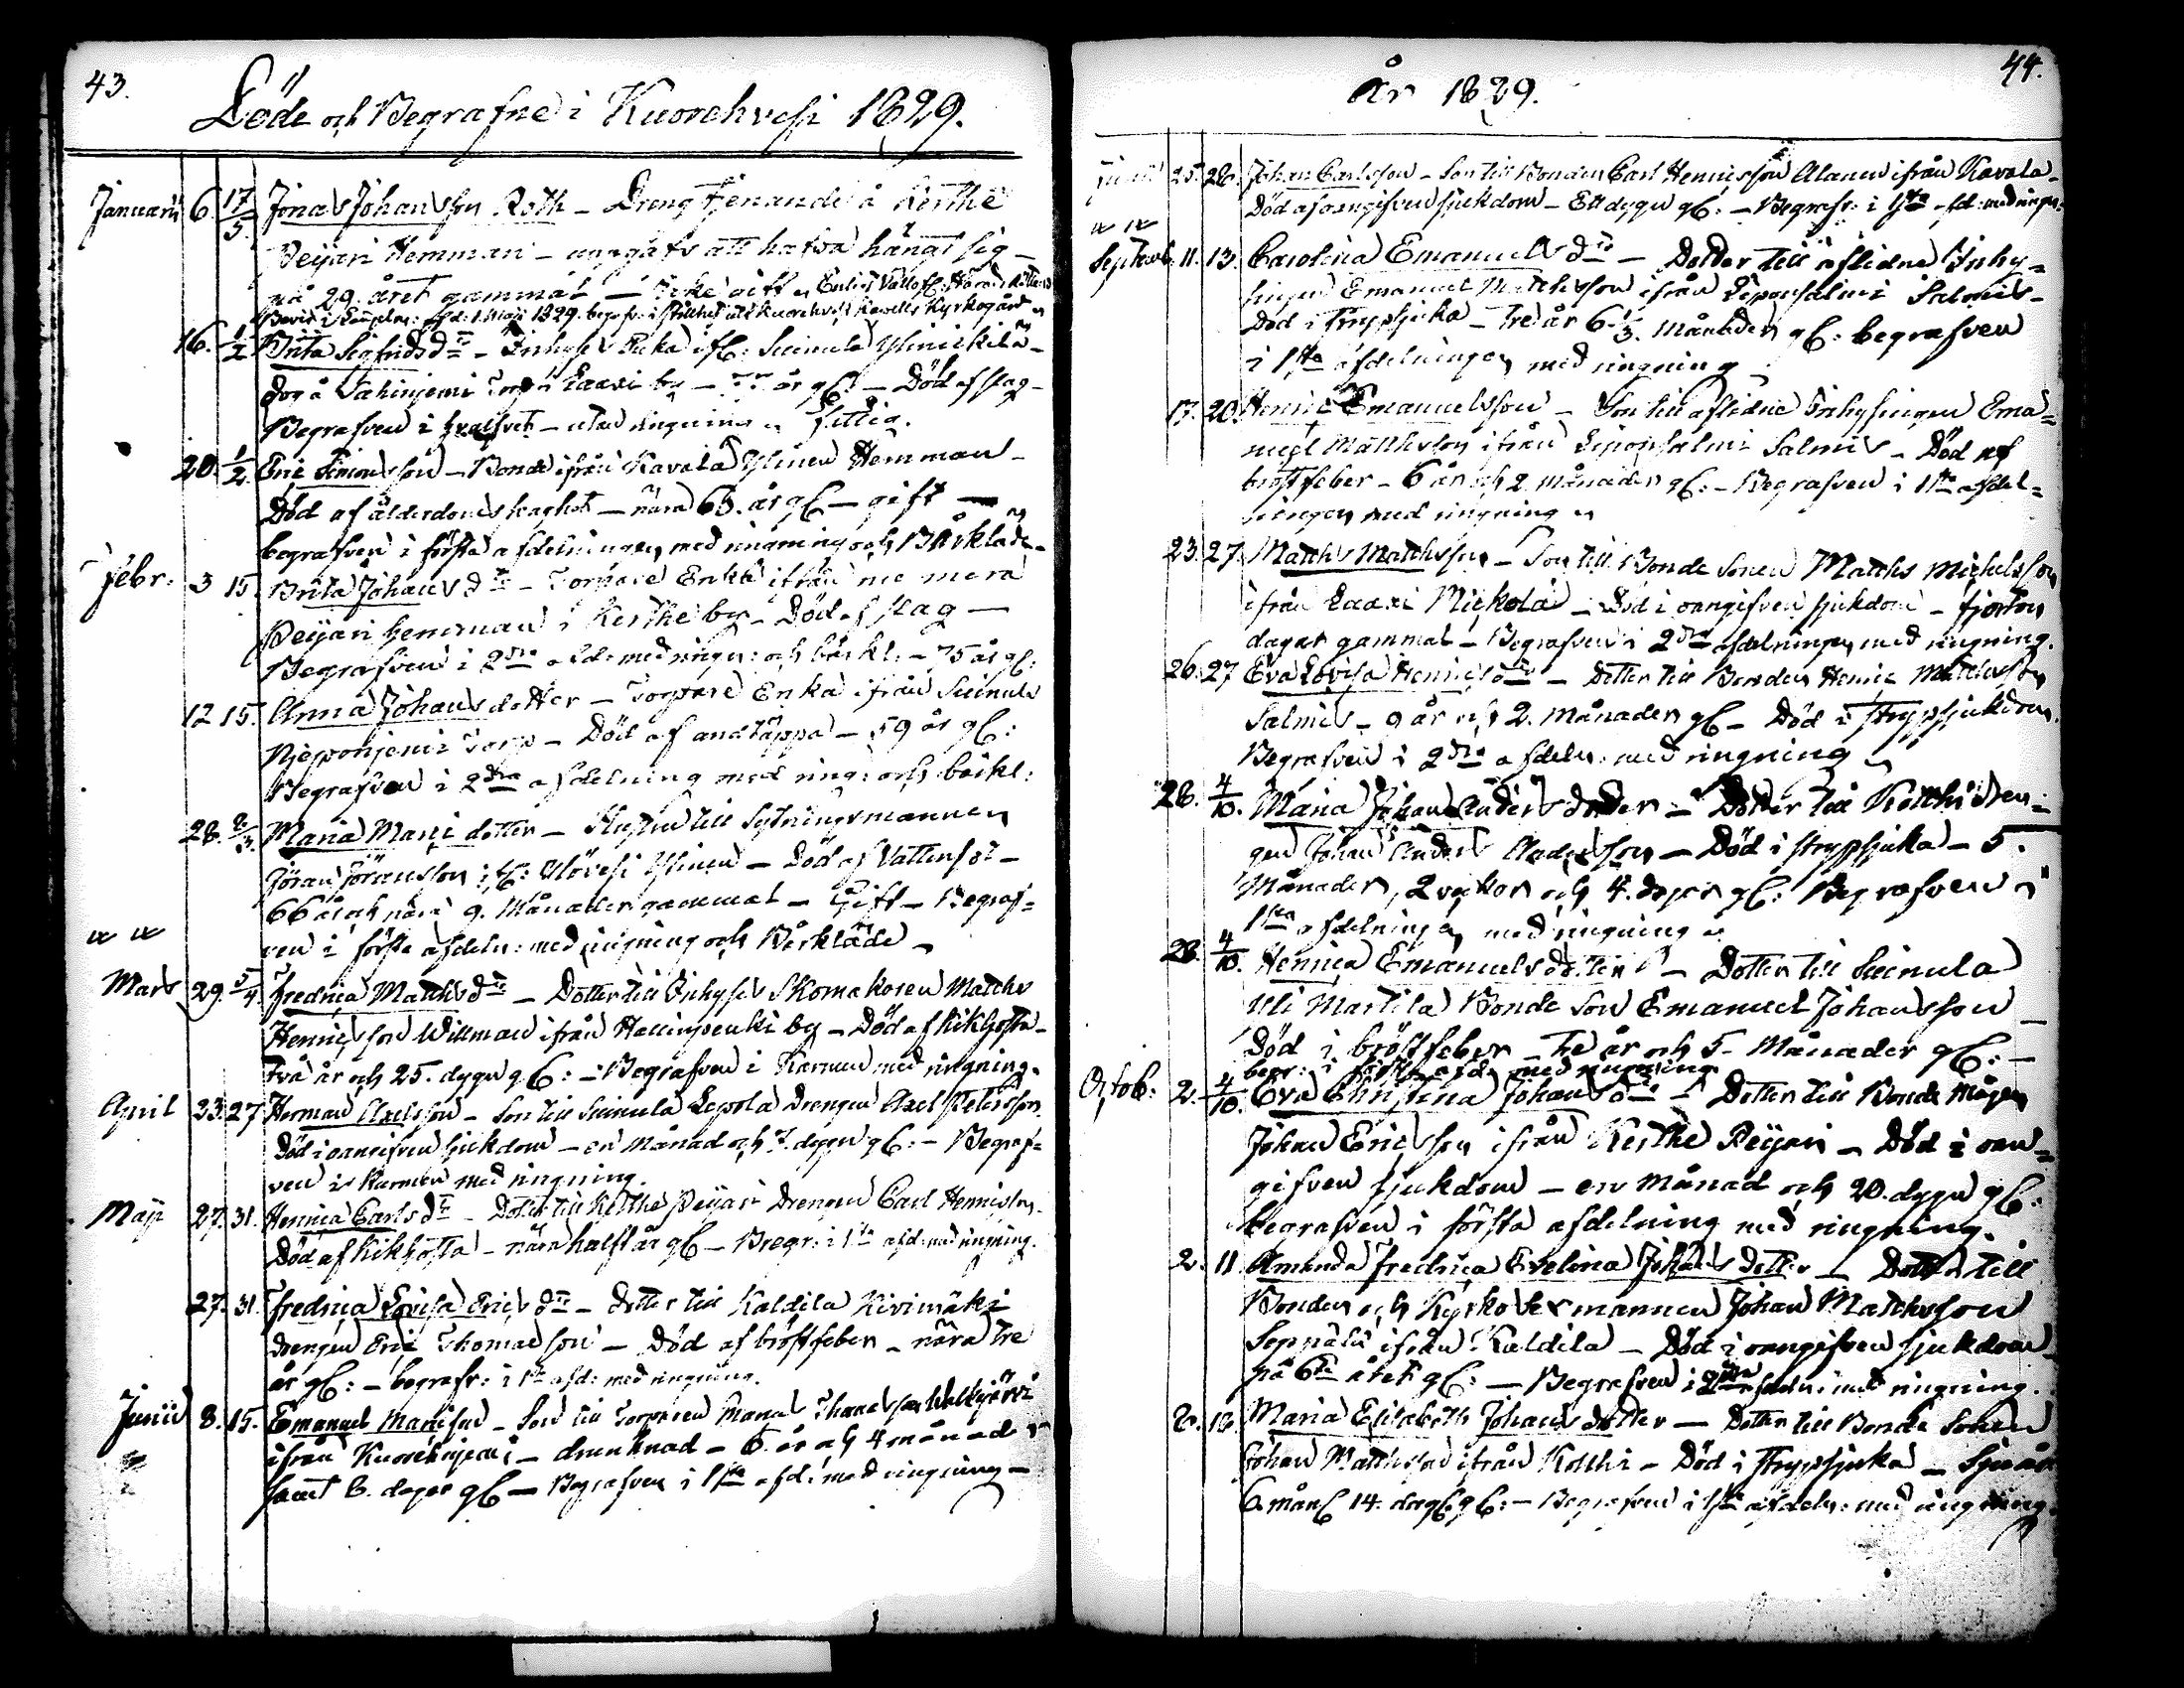 43.
Döde och Begrafne i Kuorehvesi 1829.
Januarii 6. 17/5. Jonas Johansson Roth - Dreng tjenande å Kerthe
Peijari Hemman - uppgåfs att hafva hängt sig -
på 29. året gammal - icke gift
16. 1/2 Brita Sigfridsdr - Inhyses Enka ifr: Suinula
dog å Torp å Laaxi by - år gl: - Död af slag -
Begrafven i - utan ringning
20. 1/2. Eric Simonsson - Bonde ifrån Kavala Ylinen Hemman -
Död af ålderdoms svaghet - nära 63. år gl - gift -
begrafven i första afdelningen med ringning och Bårkläde.
Febr: 3 15. Brita Johansdr - Torpare Enka ifrån
Peijari hemman i Kerthe by - Död af slag -
Begrafven i 2dra afd: med ringn: och bårkl: - 75 år gl:
12 15. Anna Johansdotter - Torpare Enka ifrån Suinula
Torp - Död af andtäppa - 59 år gl:
Begrafven i 2dra afdelning med ring: och bårkl:
28. 8/3. Maria Mariedotter - Hustru till Sytningsmannen
Jöran Jöransson ifr: Ylinen - Död af Vattensot -
66 år och nära 9. Månader gammal - Gift - Begraf=
ven i första afdeln: med ringning och Bårkläde -
Mars 29. 5/4 Fredrica Mattsdr - Dotter till Inhyses Skomakaren Matths
Henricsson Willman ifrån Hallinpenki by - Död af kikhosta -
Två år och 25. dygn gl: - Begrafven i Karmen med ringning.
April 23. 27 Herman Axelsson - Son till Suinula Lepola Drengen Axel Petersson.
Död i oangifven sjukdom - en månad och 7. dygn gl: - Begraf=
ven i Karmen med ringning.
Maji 27. 31. Henrica Carlsdr - Dotter till Kerthe Peijari Drengen Carl Henricsson.
Död af kikhosta - nära halft år gl - Begr: i 1sta afd: med ringning.
27. 31. Fredrica Lovisa Ericsdr - dotter till Kaldila Kivimäki
drengen Eric Thomasson - Död af bröstfeber - nära tre
år gl: - begrafv: i 1sta afd: med ringning.
Junii 8. 15. Emanuel - Son till Torparen
ifrån Kuorehnjemi - drunknad - 6. år och 4 månader
samt 6. dagar gl - Begrafven i 1sta afd: med ringning -
År 1829.
44.
25. 28. Johan Carlsson - Son till Bonden Carl Henricsson Alanen ifrån Kavala -
Död af oangifven sjukdom - Ett dygn gl: - Begrafv: i 1sta afd: med ringn:
Septemb. 11. 13. Carolina Emanuelsdr - Dotter till aflidne Inhy=
singen Emanuel Matthsson ifrån Leponsalmi Salmis -
Död i strypsjuka - Tre år 6 1/3. Månader gl: begrafven
i 1sta afdelningen med ringning
17. 20. Henric Emanuelsson - Son till aflidne Inhysingen Ema=
nuel Matthsson ifrån Leponsalmi Salmis - Död af
bröstfeber - 6 år och 2. månader gl: - Begrafven i 1sta afdel=
ningen med ringning
23. 27. Matths Matthsson - Son till Bonde Sonen Matths Michelsson
ifrån Laaxi Mickola - Död i oangifven sjukdom - fjorton
dagar gammal - Begrafven i 2dra afdelningen med ringning.
26. 27 Eva Lovisa Henricsdr - Dotter till Bonden Henric Matthsson
Salmis - 9 år och 2. Månader gl - Död i strypsjukdom.
Begrafven i 2dra afdeln: med ringning
28. 4/10. Maria Johan Andersdotter - Dotter till Kotthi dren=
gen Johan Anders Andersson - Död i strypsjuka - 5.
Månader, 2 veckor och 4. dagar gl: Begrafven i
1sta afdelningen med ringning
28. 4/10. Henrica Emanuelsdotter - Dotter till Suinula
Uli Martila Bonde Son Emanuel Johansson -
Död i bröstfeber - Tre år och 5. Månader gl: -
begr: i första afd: med ringning
Octob: 2. 4/10. Eva Christina Johansdr - Dotter till Bonde Mågen
Johan Ericsson ifrån Kerthe Peijari - Död i oan=
gifven sjukdom - en månad och 20. dygn gl:
begrafven i första afdelning med ringning.
2. 11. Amanda Fredrica Evelina Johansdotter - Dotter till
Bonden och Kyrkovärmannen Johan Matthsson
Seppälä ifrån Kaldila - Död i oangifven sjukdom -
på 6te året gl: - Begrafven i 2dra afdeln: med ringning.
8. 18. Maria Elisabeth Johansdotter - Dotter till Bonde Sonen
Johan Matthsson ifrån Kotthi - Död i strypsjuka - Sju år
6. mån 14. dag gl: - Begrafven i 1sta afdeln: med ringning.